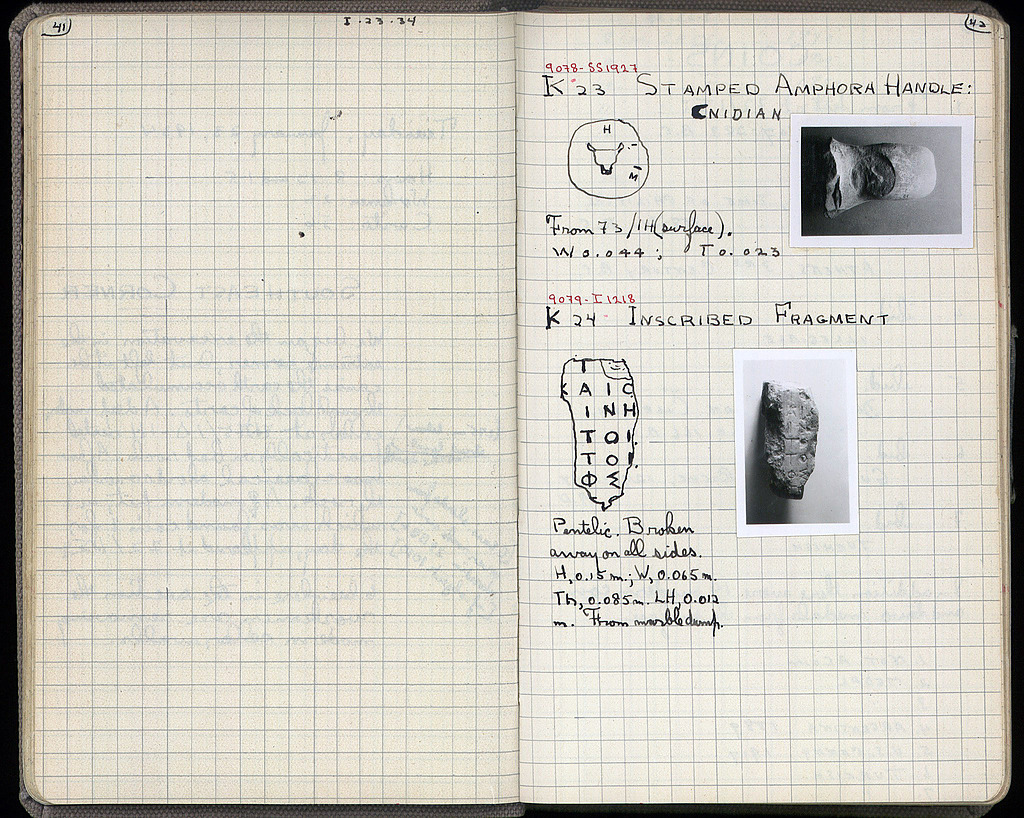 41
I·23·34
42
9078-SS1927
K 23 STAMPED AMPHORA HANDLE:
CNIDIAN
H
M
From 73/IH (surface).
W 0.044; T 0.023
9079-I 1218
K 24 INSCRIBED FRAGMENT
Τ
Κ Α Ι Ο
Ι Ν Η
Τ Ο Ι
Τ Ο
Φ Σ
Pentelic. Broken
away on all sides.
H, 0.15 m.; W, 0.065 m.
Th, 0.085 m. LH, 0.012
m. From marble dump.